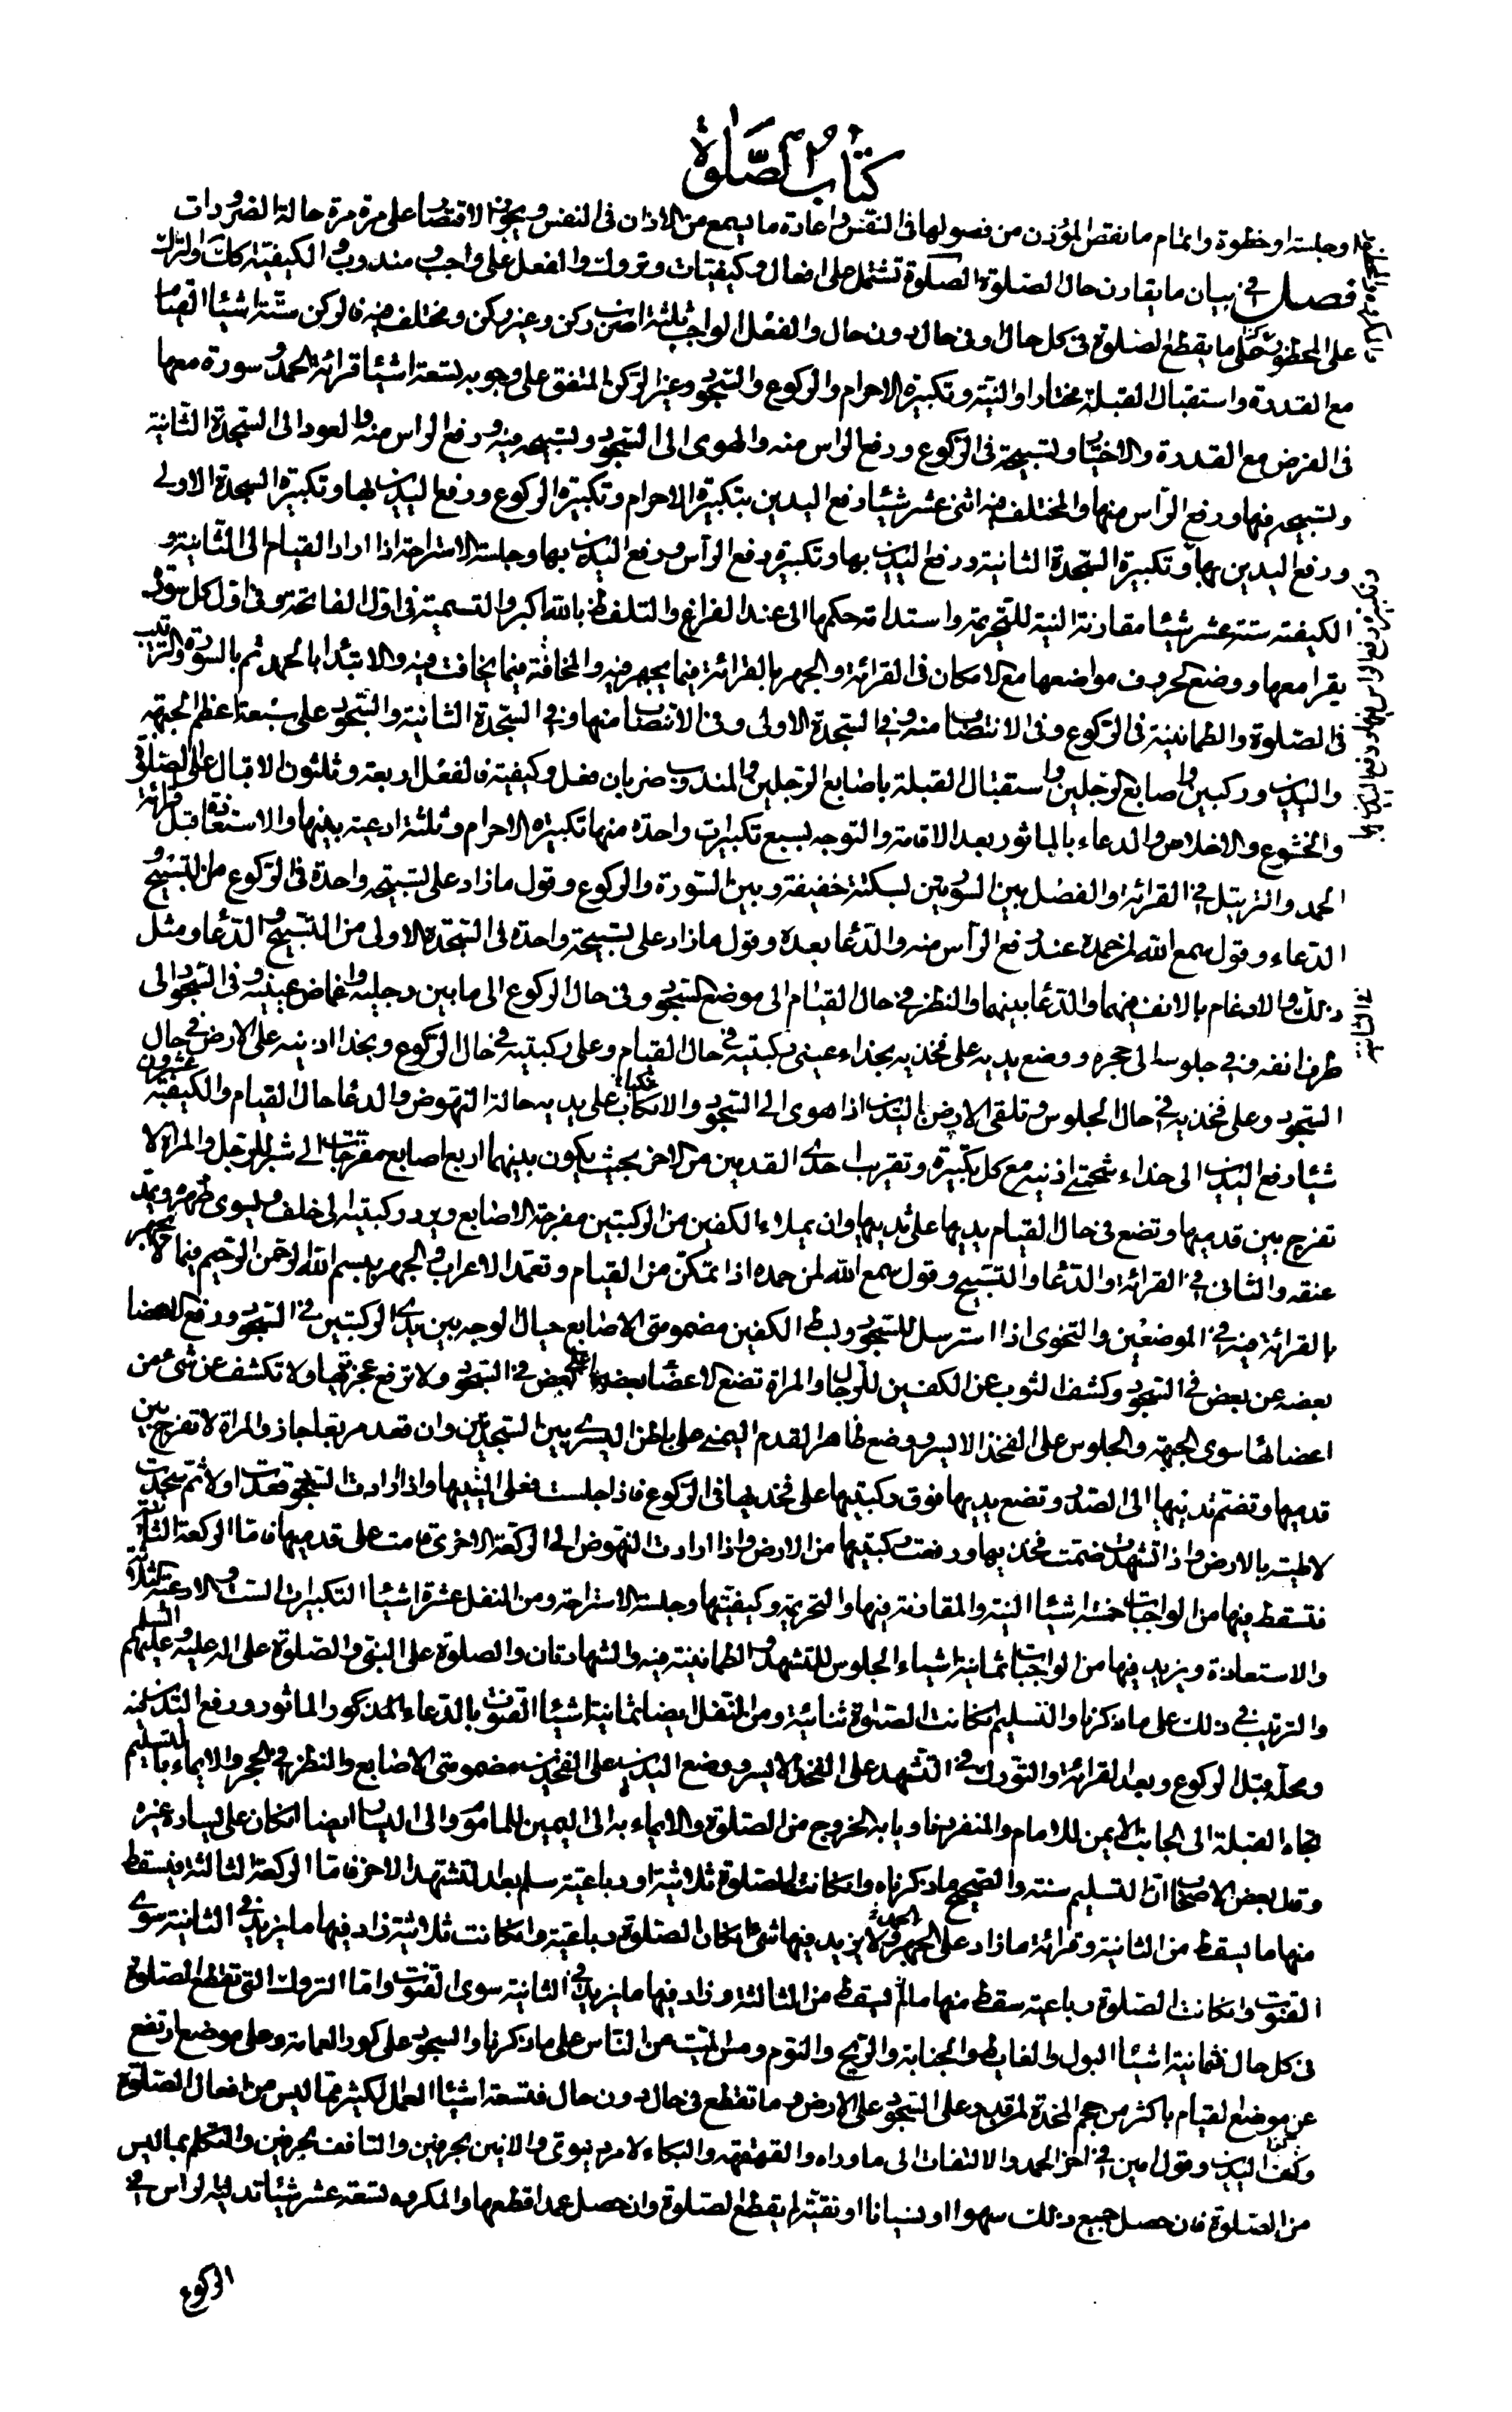 كتاب الصلوة
او جلسة او خطوة واتمام ما نقص المؤذن من فصولها فى النفس واعادة ما يسمع من الاذان فى النفس ويجوز الاقتصار على مرة مرة حالة الضرورات
فصل فى بيان ما يقارن حال الصلوة الصلوة تشتمل على افعال وكيفيات وتروك والفعل على واجب ومندوب والكيفية كذلك والترك
على المحظور على ما يقطع الصلوة فى كل حال وفى حال دون حال والفعل الواجب ثلثة اضرب ركن وغير ركن ومختلف فيه فالركن ستة اشياء القيام
مع القدرة واستقبال القبلة مختارا والنية وتكبيرة الاحرام والركوع والسجود وغير الركن المتفق على وجوبه تسعة اشياء قرائة الحمد وسورة معها
فى الفرض مع القدرة والاختيار وتسبيحة فى الركوع ورفع الراس منه والهوى الى السجود وتسبيحه فيه ورفع الراس منه والعود الى السجدة الثانية
وتسبيحه فيها ورفع الراس منها والمختلف فيه اثنى عشر شيئا رفع اليدين بتكبيرة الاحرام وتكبيرة الركوع ورفع اليدين بها وتكبيرة السجدة الاولى
ورفع اليدين بها وتكبيرة السجدة الثانية ورفع اليدين بها وتكبيرة رفع الراس ورفع اليدين بها وجلسة الاستراحة اذا اراد القيام الى الثانية و
الكيفية ستة عشر شيئا مقارنة النية للتحريمة واستدامة حكمها الى عند الفراغ والتلفظ بالله اكبر والتسمية فى اول الفاتحة وفى اول كل سورة
يقرا معها ووضع الحروف مواضعها مع الامكان فى القرائة والجهر بالقرائة فيما يجهر فيه والمخافتة فيما يخافت فيه والابتداء بالحمد ثم بالسورة والترتيب
فى الصلوة والطمانينة فى الركوع وفى الانتصاب منه وفى السجدة الاولى وفى الانتصاب منها وفى السجدة الثانية والسجود على سبعة اعظم الجبهة
واليدين وركبتين واصابع الرجلين واستقبال القبلة باصابع الرجلين والمندوب ضربان فعل وكيفية فالفعل اربعة وثلثون الاقبال على الصلوة
والخشوع والاخلاص والدعاء بالماثور بعد الاقامة والتوجه بسبع تكبيرات واحدة منها تكبيرة الاحرام وثلثة ادعية بينها والاستعاذة قبل قرائة
الحمد والترتيل فى القرائة والفصل بين السورتين بسكتة خفيفة وبين السورة والركوع وقول ما زاد على تسبيحة واحدة فى الركوع من التسبيح و
الدعاء وقول سمع الله لمن حمده عند رفع الراس منه والدعاء بعده وقول ما زاد على تسبيحة واحدة فى السجدة الاولى من التسبيح والدعاء ومثل
ذلك والارغام بالانف فيهما والدعاء بينهما والنظر فى حال القيام الى موضع السجود وفى حال الركوع الى ما بين رجليه واغماض عينيه وفى السجود الى
طرف انفه وفى جلوسه الى حجره ووضع يديه على فخذيه بحذاء عينى ركبتيه فى حال القيام وعلى ركبتيه فى حال الركوع وبحذا اذنيه على الارض فى حال
السجود وعلى فخذيه فى حال الجلوس وتلقى الارض باليدين اذا هوى الى السجود والاتكاء على يديه حالة النهوض والدعاء حال القيام والكيفية عشرون
شيئا رفع اليدين الى حذاء شحمتى اذنيه مع كل تكبيرة وتقريب احدى القدمين من الاخر بحيث يكون بينهما اربع اصابع مفرجات الى شبر للرجل والمراة لا
تفرج بين قدميها وتضع فى حال القيام يديها على ثدييها وان يملاء الكفين من الركبتين مفرجة الاصابع ويرد ركبتيه الى خلف ويسوى ظهره ويمد
عنقه والثانى فى القرائة والدعاء والتسبيح وقول سمع الله لمن حمده اذا تمكن من القيام وتعمد الاعراب والجهر ببسم الله الرحمن الرحيم فيما لا يجهر
بالقرائة فيه فى الموضعين والتخوى اذا استرسل للسجود وبسط الكفين مضمومتى الاصابع حيال الوجه بين يدى الركبتين فى السجود ورفع الاعضا
بعضه عن بعض فى السجود وكشف الثوب عن الكفين للرجال والمراة تضع الاعضاء بعضها على بعض فى السجود ولا ترفع عجزتها ولا تكشف عن شئ من
اعضائها سوى الجبهة والجلوس على الفخذ الايسر ووضع ظاهر القدم اليمنى على باطن اليسرى بين السجدتين وان قعد مربعا جاز والمراة لا تفرج بين
قدميها وتضم ثدييها الى الصدر وتضع يديها فوق ركبتيها على فخذيها فى الركوع فاذا جلست فعلى اليتيها واذا ارادت السجود قعدت اولا ثم سجدت
لاطية بالارض واذا تشهدت ضمت فخذيها ورفعت ركبتيها من الارض واذا ارادت النهوض الى الركعة الاخرى قامت على قدميها فاما الركعة الثانية
فتسقط فيها من الواجبات خمسة اشياء النية والمقارنة فيها والتحريمة وكيفيتها وجلسة الاستراحة ومن النفل عشرة اشياء التكبيرات الست والادعية الثلاثة
والاستعاذة ويزيد فيها من الواجبات ثمانية اشياء الجلوس للتشهد والطمانينة فيه والشهادتان والصلوة على النبى والصلوة على اله عليه وعليهم السلم
والترتيب فى ذلك على ما ذكرنا والتسليم ان كانت الصلوة ثنائية ومن النفل ايضا ثمانية اشياء القنوت بالدعاء المذكور الماثور ورفع اليدين فيه
ومحله قبل الركوع وبعد القرائة والتورك فى التشهد على الفخذ الايسر ووضع اليدين على الفخذين مضمومتى الاصابع والنظر فى الحجر والايماء بالتسليم
تجاه القبلة الى الجانب الايمن للامام والمنفرد ناويا به الخروج من الصلوة والايماء به الى اليمين للماموم والى اليسار ايضا ان كان على يساره غيره
وقال بعض الاصحاب ان التسليم سنة والصحيح ما ذكرناه وان كانت الصلوة ثلاثية او رباعية سلم بعد التشهد الاخر فاما الركعة الثالثة فيسقط
منها ما يسقط من الثانية وقرائة ما زاد على الحمد ولا يزيد فيها شئ ان كان الصلوة رباعية وان كانت ثلاثية زاد فيها ما يزيد فى الثانية سوى
القنوت وان كانت الصلوة رباعية سقط منها ما لم يسقط من الثالثة وزاد فيها ما يزيد فى الثانية سوى القنوت واما التروك التى تقطع الصلوة
فى كل حال فثمانية اشياء البول والغايط والجنابة والريح والنوم ومس الميت من الناس على ما ذكرنا والسجود على كور العمامة وعلى موضع ارتفع
عن موضع القيام باكثر من حجم المخدة لمن قدر على السجود على الارض وما تقطع فى حال دون حال فتسعة اشياء العمل الكثير مما ليس من افعال الصلوة
وكتف اليدين وقول امين فى اخر الحمد والالتفات الى ما وراه والقهقهة والبكاء لامر دنيوى والانين بحرفين والتافف بحرفين والتكلم بما ليس
من الصلوة فان حصل جميع ذلك سهوا او نسيانا او تقية لم يقطع الصلوة وان حصل عمدا قطعها والمكروه تسعة عشر شيئا تدلية الراس فى
الركوع
وتكبيرة رفع الراس منها ورفع اليدين بها
فى الثانية